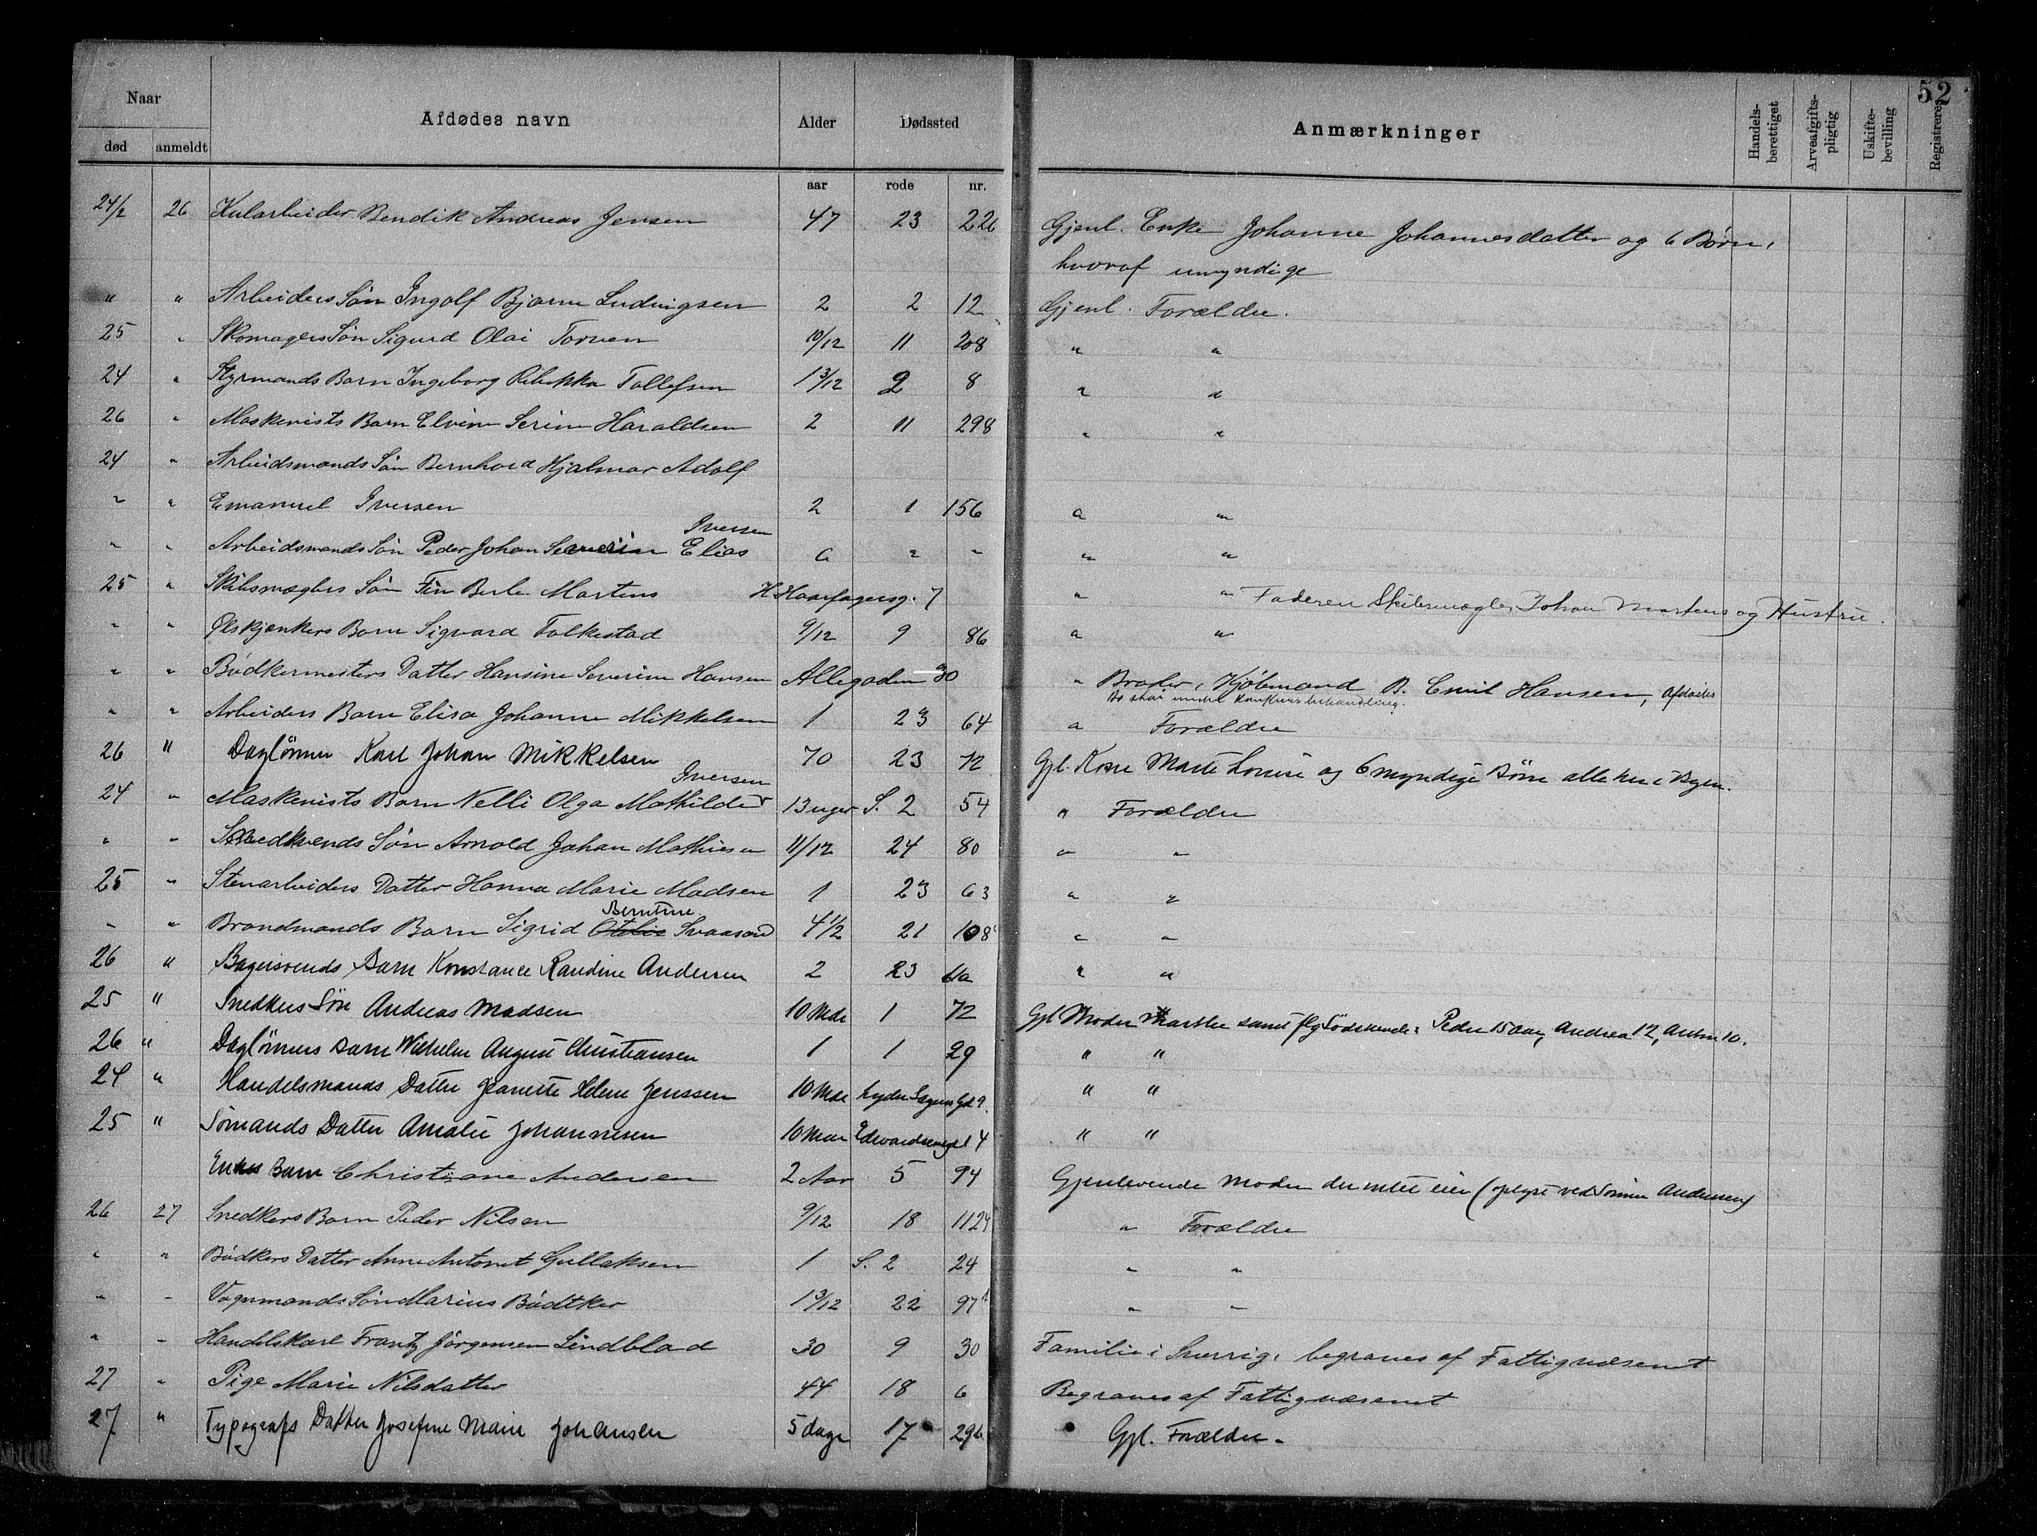 52
Naar
Afdødes navn
Alder
Dødssted
Anmærkninger
Handels-berettiget
Arveafgifts-pligtig
Uskifte-bevilling
Registreret
død anmeldt
aar rode nr.
24/2 26 Kularbeider Bendik Andreas Jensen 47 23 226 Gjenl. Enke Johanne Johannesdatter og 6 Børn,
hvoraf umyndige
" " Arbeiders Søn Ingolf Bjarne Ludvigsen 2 2 12 Gjenl. Forældre.
25 " Skomagers Søn Sigurd Olai Torsen 10/12 11 208 " "
24 " Styrmands Barn Ingeborg Rebekka Tollefsen 1 3/12 2 8 " "
26 " Maskinists Barn Elvine Serine Haraldsen 2 11 298 " "
24 " Arbeidsmands Søn Bernhard Hjalmar Adolf
" " Emanuel Iversen 2 1 156 " "
Iversen
" " Arbeidsmands Søn Peder Johan Severin Elias 6 " " " "
25 " Skibsmæglers Søn Fin Berle Martens H. Haarfagersg. 7 " " Faderen Skibsmægler Johan Martens og Hustru.
" " Ølskjænkers Barn Sigvard Folkestad 9/12 9 86 " "
" " Bødkermesters Datter Hansine Severine Hansen Allegaden 30 " Broder, Kjøbmand B. Emil Hansen, Afdødes
Bo staar under Konkursbehandling.
" " Arbeiders Barn Elisa Johanne Mikkelsen 1 23 64 " Forældre
26 " Daglønner Karl Johan Mikkelsen 70 23 72 Gjl. Kone Marte Louise og 6 myndige Børn alle her i Byen.
Iversen
24 " Maskinists Barn Nelli Olga Mathilde 13 uger S. 2 54 " Forældre
" " Smedsvends Søn Arnold Johan Mathiesen 11/12 24 80 " "
25 " Stenarbeiders Datter Hanna Marie Madsen 1 23 63 " "
Berntine
" " Brandmands Barn Sigrid Svaasand 4 1/2 21 108 " "
26 " Bagersvends Barn Konstance Randine Andersen 2 23 61a " "
25 " Snedkers Søn Andreas Madsen 10 Mdr 1 72 Gjl Moder Marthe samt flg Sødskende: Peder 15 Aar, Andrea 12, Anton 10.
26 " Daglønners Barn Wilhelm August Christiansen 1 1 29 " "
24 " Handelsmands Datter Jeanette Helene Jenssen 10 Mdr Lyder Sagens Gd 9. " "
25 " Sømands Datter Amalie Johannesen 10 Mdr Edvardsensgd 4 " "
Enkes Barn Christiane Andersen 2 Aar 5 94 Gjenlevende Moder der intet eier (oplyst ved Sønnen Andersen)
26 27 Snedkers Barn Peder Nilsen 9/12 18 112 " Forældre
" " Bødkers Datter Anne Antonet Gullaksen 1 S. 2 24 " "
" " Vognmands Søn Marius Bødtker 1 3/12 22 97 " "
" " Handelskarl Frantz Jørgensen Lindblad 30 9 30 Familie i Sverrig, begraves af Fattigvæsenet
27 " Pige Marie Nilsdatter 44 18 6 Begraves af Fattigvæsenet
27 " Typografs Datter Josefine Marie Johansen 5 dage 17 296 Gjl. Forældre.